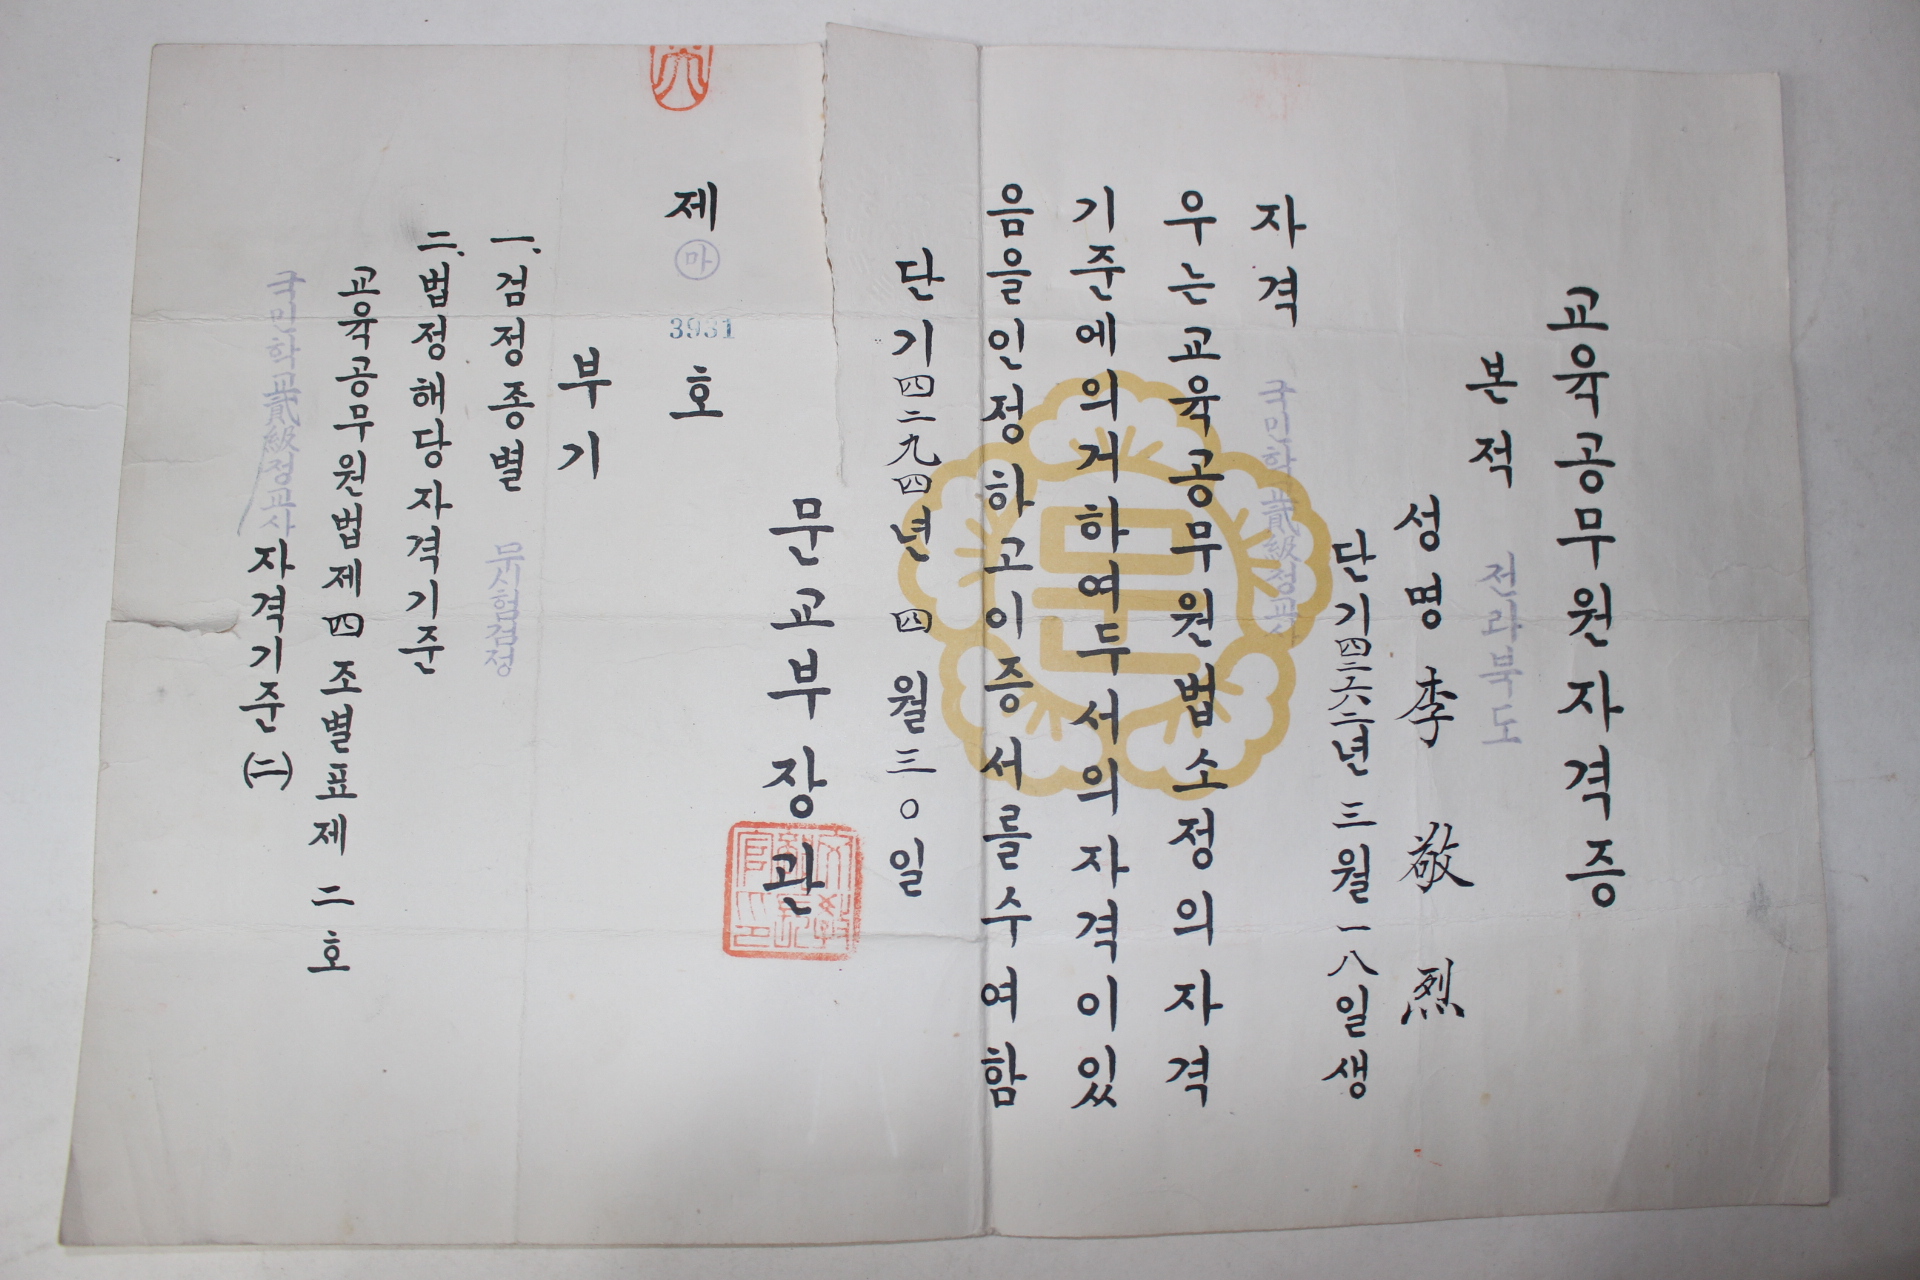 교육공무원자격증
본적 전라북도
성명 李敬烈
단기四二六二年 三월一八일생
자격 국민학교貳級정교사
우는교육공무원법소정의자격
기준에의거하여두서의자격이있
음을인정하고이증서를수여함
단기四二九四년 四월三〇일
문교부장관
제 마 3931 호
부기
一. 검정종별 무시험검정
二. 법정해당자격기준
교육공무원법제四조별표제二호
국민학교貳級정교사자격기준(二)